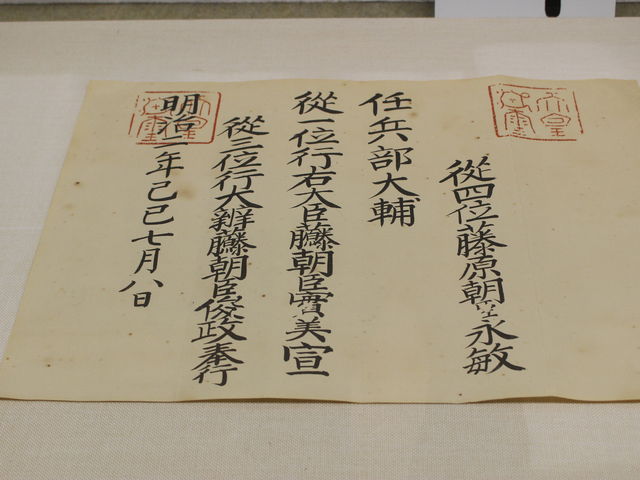 従四位藤原朝臣永敏
任兵部大輔
従一位行右大臣藤原朝臣實美宣
従三位行大辨藤原朝臣俊政奉行
明治二年己巳七月八日
天皇御璽
天皇御璽